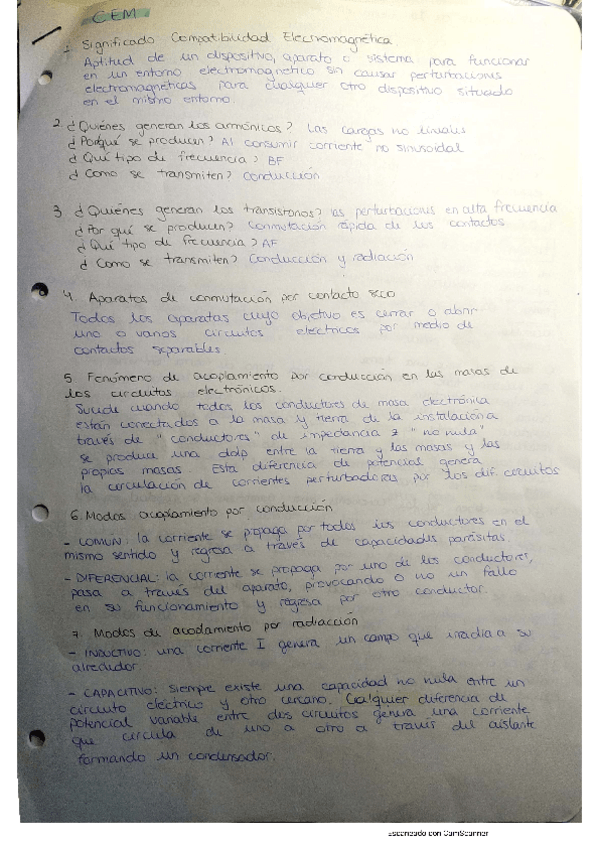 CEM
1. Significado Compatibilidad Electromagnética.
Aptitud de un dispositivo, aparato o sistema para funcionar
en un entorno electromagnético sin causar perturbaciones
electromagnéticas para cualquier otro dispositivo situado
en el mismo entorno.
2. ¿Quiénes generan los armónicos? Las cargas no lineales
¿Porqué se producen? Al consumir corriente no sinusoidal
¿Qué tipo de frecuencia? BF
¿Como se transmiten? Conducción
3. ¿Quienes generan los transistorios? las perturbaciones en alta frecuencia
¿Por qué se producen? Conmutación rápida de los contactos
¿Qué tipo de frecuencia? AF
¿Como se transmiten? Conducción y radiación
4. Aparatos de conmutación por contacto seco
Todos los aparatos cuyo objetivo es cerrar o abrir
uno o varios circuitos eléctricos por medio de
contactos separables
5. Fenómeno de acoplamiento por conducción en las masas de
los circuitos electrónicos.
Sucede cuando todos los conductores de masa electrónica
están conectados a la masa y tierra de la instalación a
través de "conductores" de impedancia z "no nula"
se produce una ddp entre la tierra y las masas y las
propias masas. Esta diferencia de potencial genera
la circulación de corrientes perturbadoras por los dif. circuitos
6. Modos acoplamiento por conducción
- COMUN: la corriente se propaga por todos los conductores en el
mismo sentido y regresa a través de capacidades parásitas.
- DIFERENCIAL: la corriente se propaga por uno de los conductores,
pasa a través del aparato, provocando o no un fallo
en su funcionamiento y regresa por otro conductor.
7. Modos de acoplamiento por radiacción
- INDUCTIVO: una corriente I genera un campo que irradia a su
alrededor
- CAPACITIVO: Siempre existe una capacidad no nula entre un
circuito eléctrico y otro cercano. Cualquier diferencia de
potencial variable entre dos circuitos genera una corriente
que circula de uno a otro a través del aislante
formando un condensador.
Escaneado con CamScanner